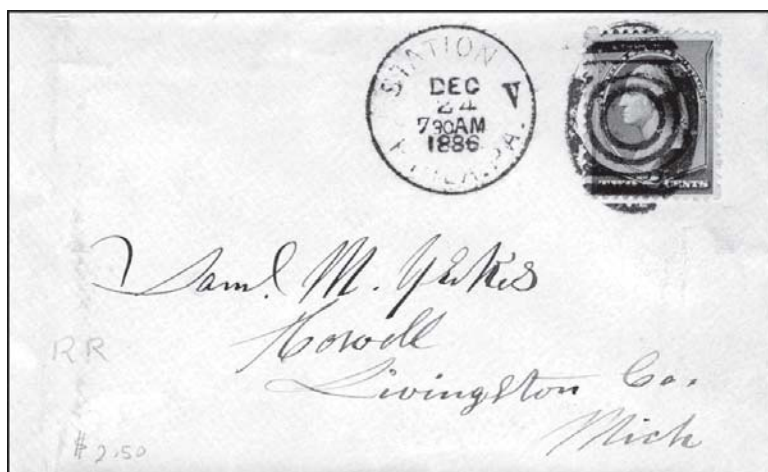 STATION V
DEC
24
730AM
1886
PHILA. PA.
CENTS
Saml. M. Yerkes
Howell
Livingston Co.
Mich
RR
$2.50